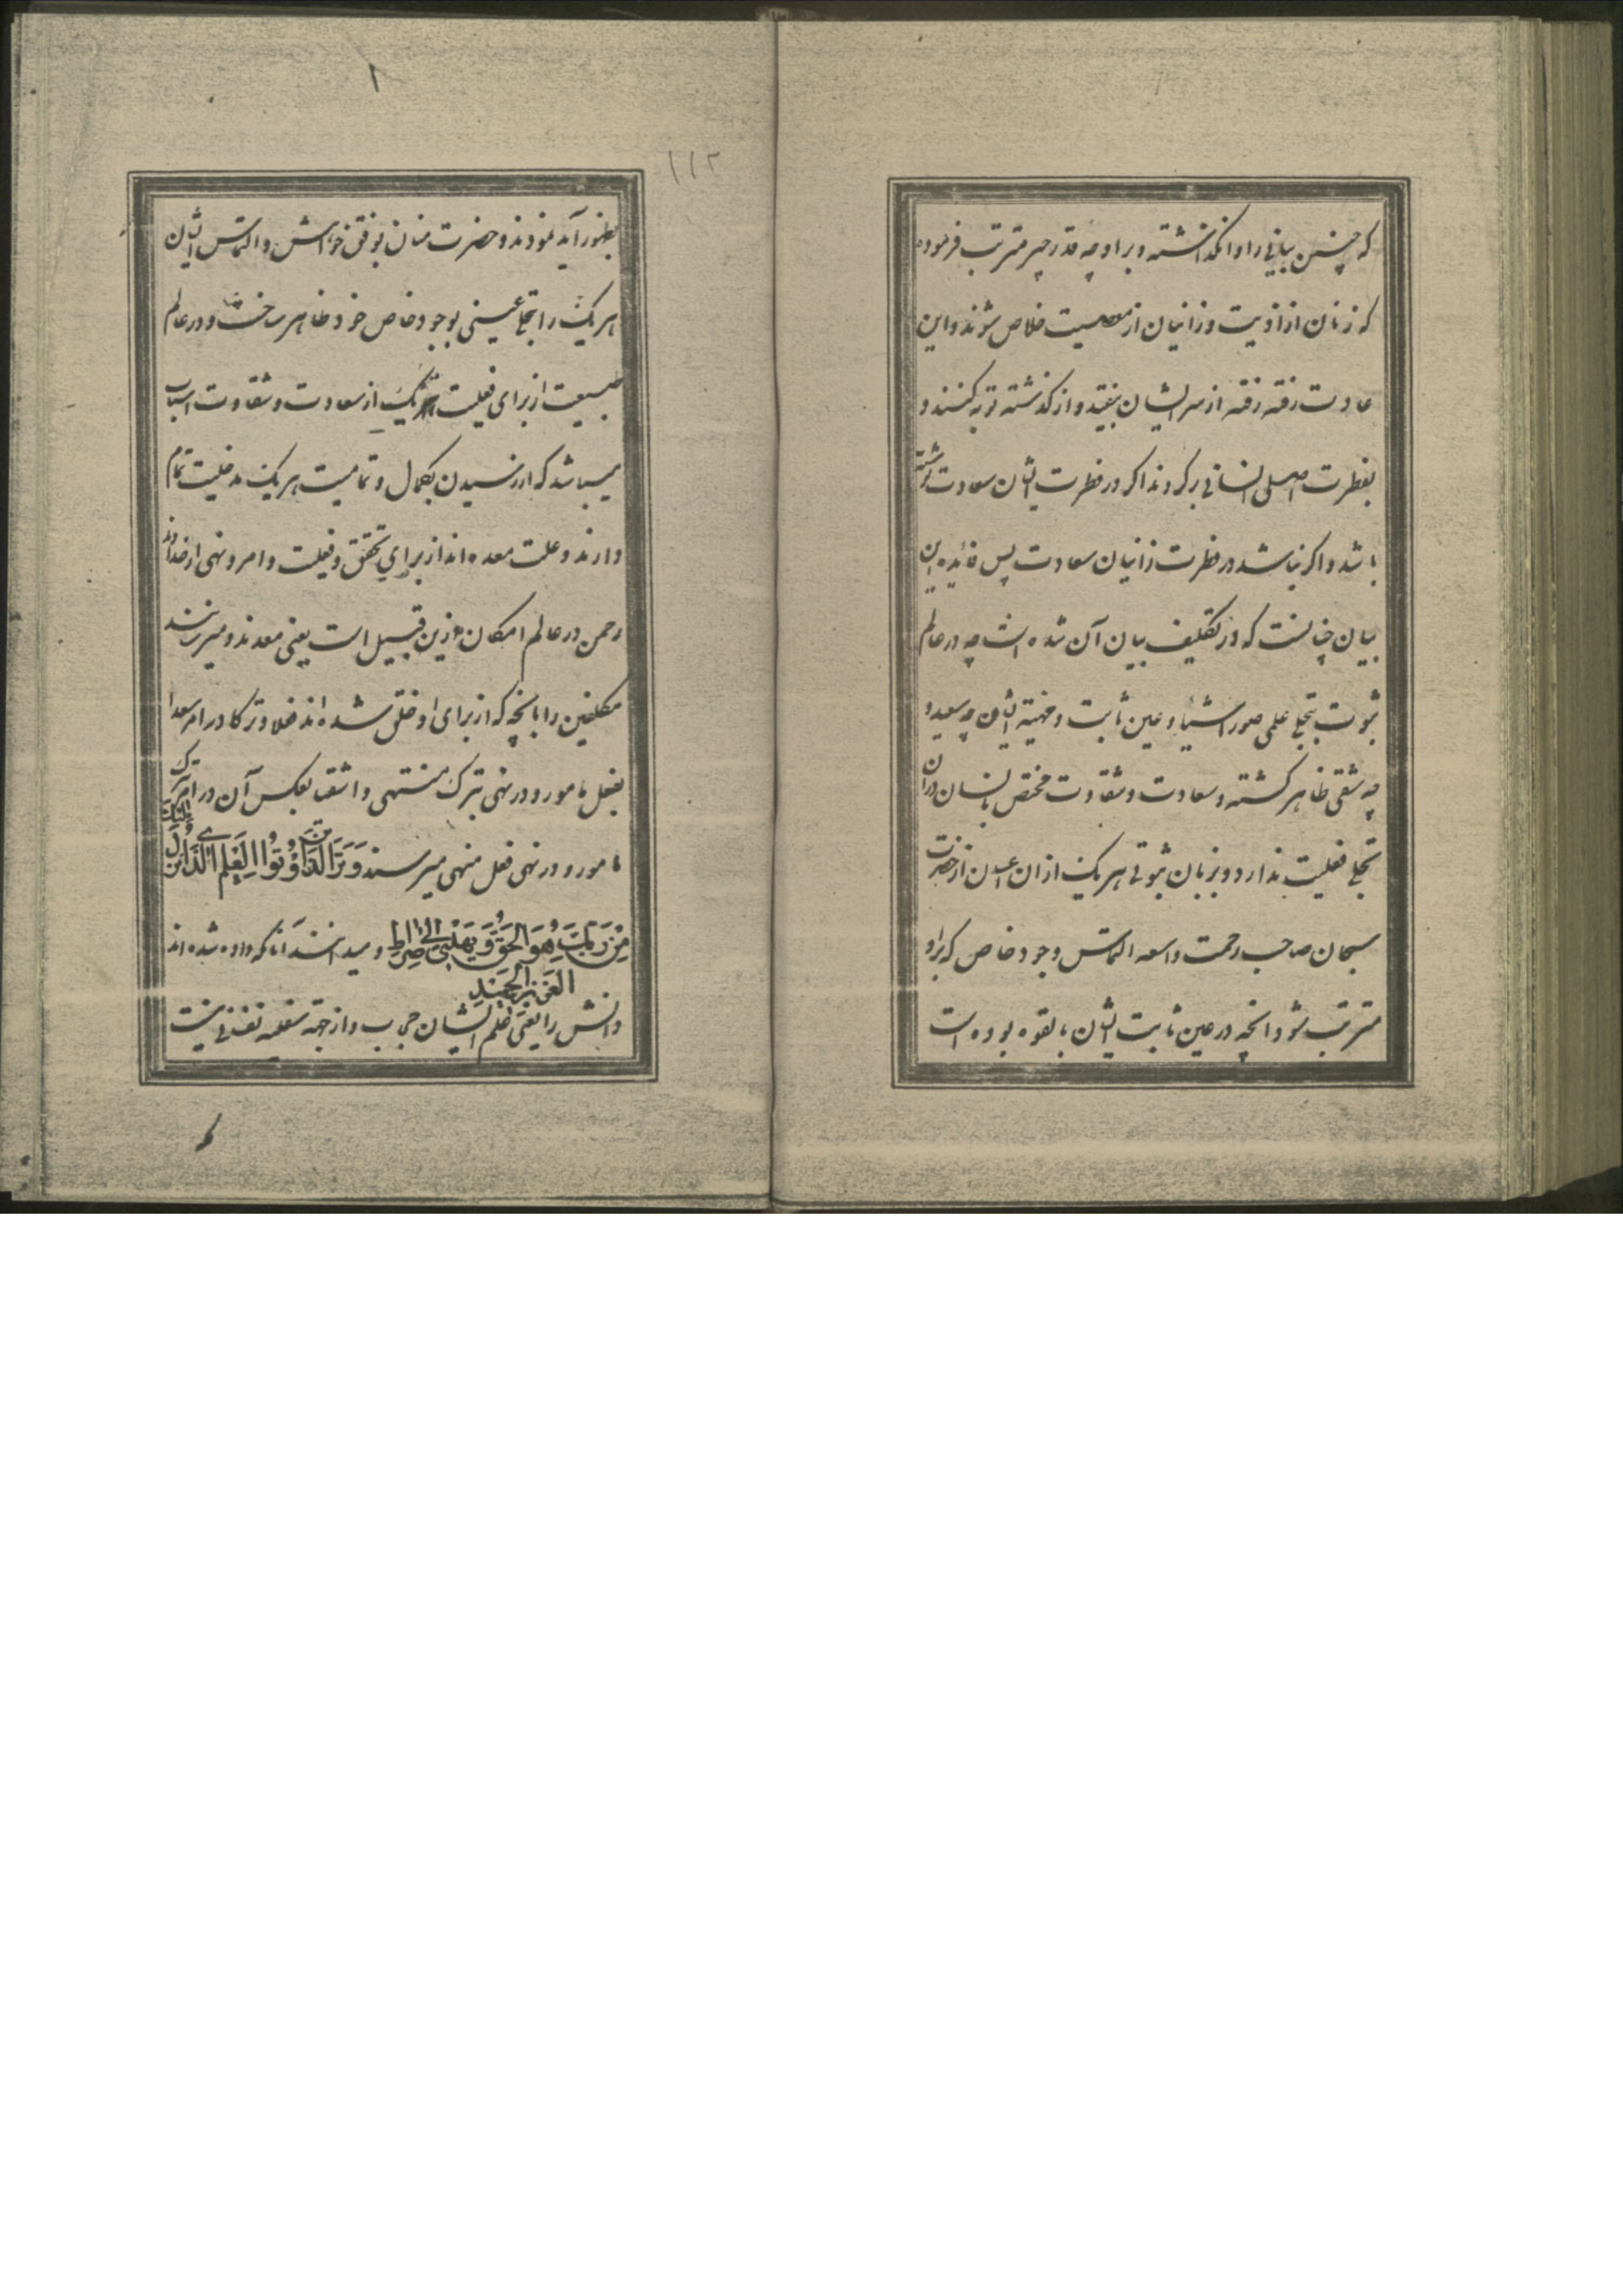 که چنین بیانی را وانگذاشته و بر او چه قدر چیز مترتب فرموده
که زنان از اذیت و زانیان از معصیت خلاص شوند و این
عادت رفته رفته از سر ایشان بیفتد و از گذشته توبه کنند و
بفطرت اصلی انسانی برگردند اگر در فطرت ایشان سعادت نوشته
باشد و اگر نباشد در فطرت زانیان سعادت پس فائده این
بیان چنانست که در تکلیف بیان آن شده است چه در عالم
ثبوت بتجلی علمی صور اشیاء و عین ثابت و مهیته ایشان چه سعید و
چه شقی ظاهر گشته و سعادت و شقاوت مختص بانسان در آن
تجلی فعلیت ندارد و بزبان ثبوتی هر یک از ان اعیان از حضرت
سبحان صاحب رحمت واسعه التماس وجود خاص که براو
مترتب شود انچه در عین ثابت ایشان بالقوه بوده است
۱۱۲
بظهور آید نمودند و حضرت منان بوفق خواهش و التماس ایشان
هر یک را بتجلی عینی بوجود خاص خود ظاهر ساخت و در عالم
طبیعت از برای فعلیت هر یک از سعادت و شقاوت اسباب
میباشد که در رسیدن بکمال و تمامیت هر یک مدخلیت تمام
دارند و علت معده اند از برای تحقق و فعلیت و امر و نهی از خداوند
رحمن در عالم امکان ازین قبیل است یعنی معدند و میرسانند
مکلفین را بانچه که از برای او خلق شده اند فعلا و ترکا در امر سعدا
بفعل مامور و در نهی بترک منتهی و اشقیا بعکس آن در امر ترک
مامور و در نهی فعل منهی میرسند وَيَرَى الَّذِينَ أُوتُوا الْعِلْمَ الَّذِي أُنْزِلَ إِلَيْكَ
مِنْ رَبِّكَ هُوَ الْحَقَّ وَيَهْدِي إِلَى صِرَاطِ الْعَزِيزِ الْحَمِيدِ و میدانند آنانکه داده شده اند
دانش را یعنی علم ایشان حجاب و از جهته سفلیه نفس نیست